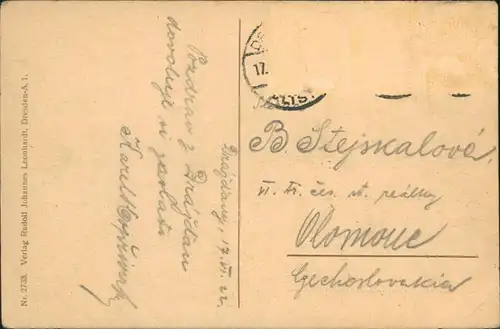 Nr. 2733. Verlag Rudolf Johannes Leonhardt, Dresden-A. 1.
Pozdrav z Drážďan
dovoluje si zaslati
Karel
Drážďany, 17. VI. 22.
17.
B. Stejskalová
VI. tř. čes. st. reálky
Olomouc
Czechoslovakia